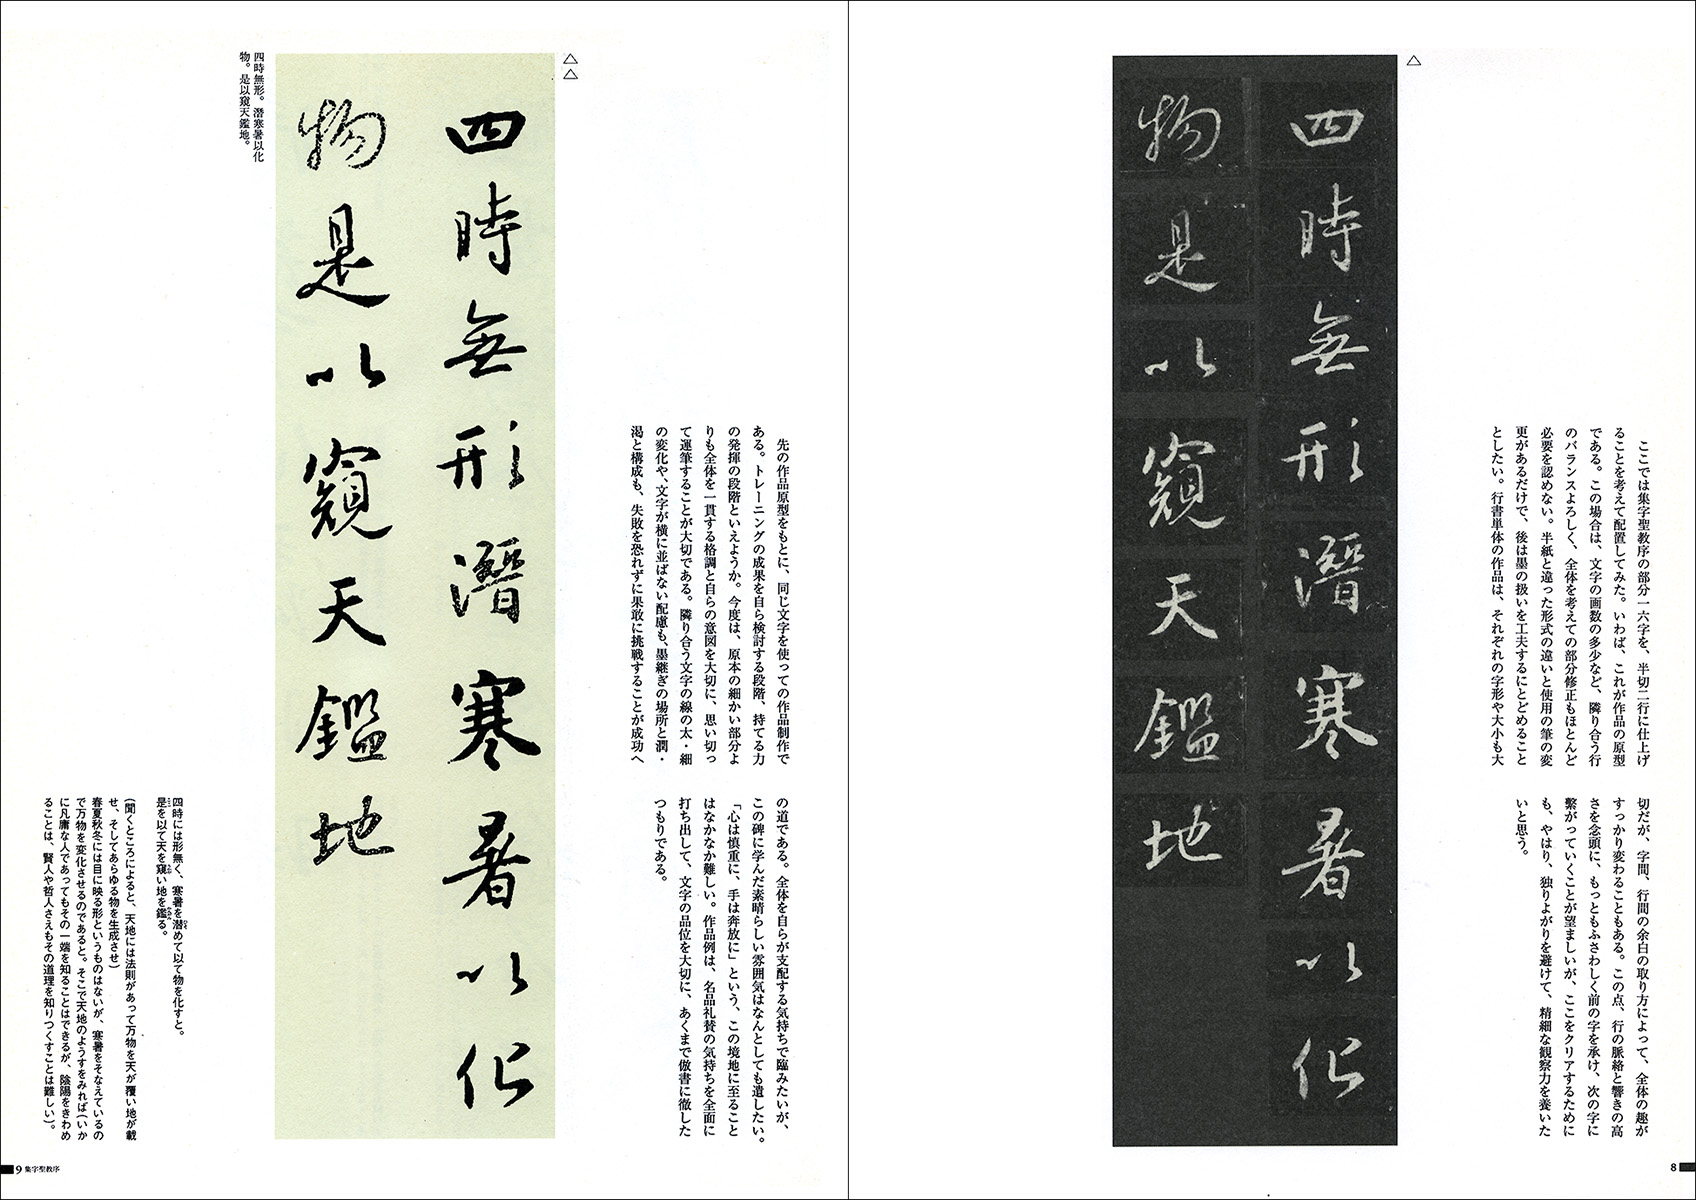 △
四時無形潛寒暑以化
物是以窺天鑑地
ここでは集字聖教序の部分一六字を、半切二行に仕上げ
ることを考えて配置してみた。いわば、これが作品の原型
である。この場合は、文字の画数の多少など、隣り合う行
のバランスよろしく、全体を考えての部分修正もほとんど
必要を認めない。半紙と違った形式の違いと使用の筆の変
更があるだけで、後は墨の扱いを工夫するにとどめること
としたい。行書単体の作品は、それぞれの字形や大小も大
切だが、字間、行間の余白の取り方によって、全体の趣が
すっかり変わることもある。この点、行の脈絡と響きの高
さを念頭に、もっともふさわしく前の字を承け、次の字に
繫がっていくことが望ましいが、ここをクリアするために
も、やはり、独りよがりを避けて、精細な観察力を養いた
いと思う。
8
△△
四時無形潛寒暑以化
物是以窺天鑑地
四時無形。潛寒暑以化
物。是以窺天鑑地。
先の作品原型をもとに、同じ文字を使っての作品制作で
ある。トレーニングの成果を自ら検討する段階、持てる力
の発揮の段階といえようか。今度は、原本の細かい部分よ
りも全体を一貫する格調と自らの意図を大切に、思い切っ
て運筆することが大切である。隣り合う文字の線の太・細
の変化や、文字が横に並ばない配慮も、墨継ぎの場所と潤・
渇と構成も、失敗を恐れずに果敢に挑戦することが成功へ
の道である。全体を自らが支配する気持ちで臨みたいが、
この碑に学んだ素晴らしい雰囲気はなんとしても遺したい。
「心は慎重に、手は奔放に」という、この境地に至ること
はなかなか難しい。作品例は、名品礼賛の気持ちを全面に
打ち出して、文字の品位を大切に、あくまで倣書に徹した
つもりである。
四時には形無く、寒暑を潜めて以て物を化すと。
是を以て天を窺い地を鑑る。
(聞くところによると、天地には法則があって万物を天が覆い地が載
せ、そしてあらゆる物を生成させ)
春夏秋冬には目に映る形というものはないが、寒暑をそなえているの
で万物を変化させるのであると。そこで天地のようすをみれば(いか
に凡庸な人であってもその一端を知ることはできるが、陰陽をきわめ
ることは、賢人や哲人さえもその道理を知りつくすことは難しい)。
9 集字聖教序